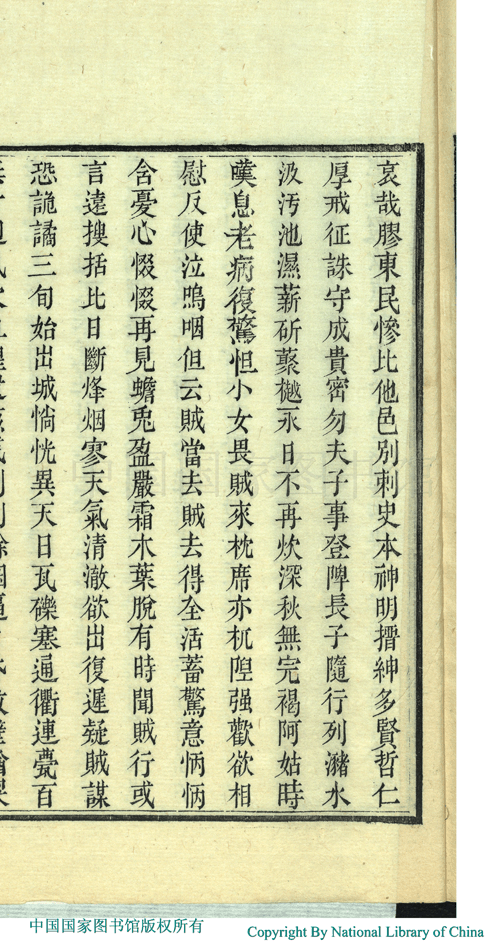 哀哉膠東民慘比他邑別刺史本神明搢紳多賢哲仁
厚戒征誅守成貴密勿夫子事登陴長子隨行列潴水
汲汚池濕薪斫蘽樾永日不再炊深秋無完褐阿姑時
嘆息老病復驚怛小女畏賊來枕席亦杌隉强歡欲相
慰反使泣嗚咽但云賊當去賊去得全活蓄驚意怲怲
含憂心惙惙再見蟾兎盈嚴霜木葉脫有時聞賊行或
言遠搜括比日斷烽烟寥天氣清澈欲出復遲疑賊謀
恐詭譎三旬始出城惝恍異天日瓦礫塞通衢連甍百
中国国家图书馆
中国国家图书馆版权所有
Copyright By National Library of China